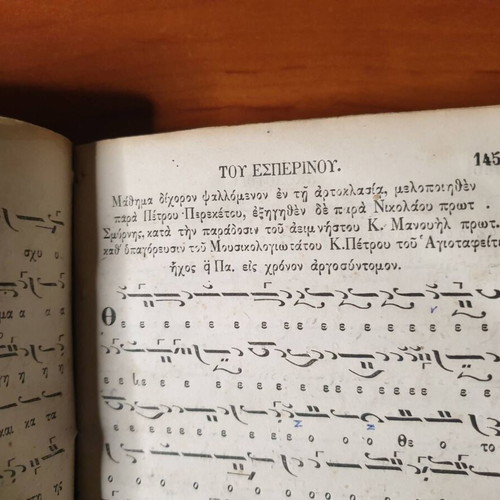 ΤΟΥ ΕΣΠΕΡΙΝΟΥ.
145
Μάθημα δίχορον ψαλλόμενον ἐν τῇ ἀρτοκλασίᾳ, μελοποιηθὲν
παρὰ Πέτρου Περεκέτου, ἐξηγηθὲν δὲ παρὰ Νικολάου πρωτ.
Σμύρνης, κατὰ τὴν παράδοσιν τοῦ ἀειμνήστου Κ. Μανουὴλ πρωτ.
καθ' ὑπαγόρευσιν τοῦ Μουσικολογιωτάτου Κ. Πέτρου τοῦ Ἁγιοταφείτ
ἦχος q Πα. εἰς χρόνον ἀργοσύντομον.
Θ ε ε ε ε ε ε ε ε ε ε ε ε ε
ε ε ε ε ε ε ε ε ε ε ε ε ε ε
ε ε ε ε ε ε ε ο ο ο ο θε ο το
ο ο ο ο ο ο ο ο ο ο ο ο
σχυ ο
μα α α
η ή ή
και κα τα